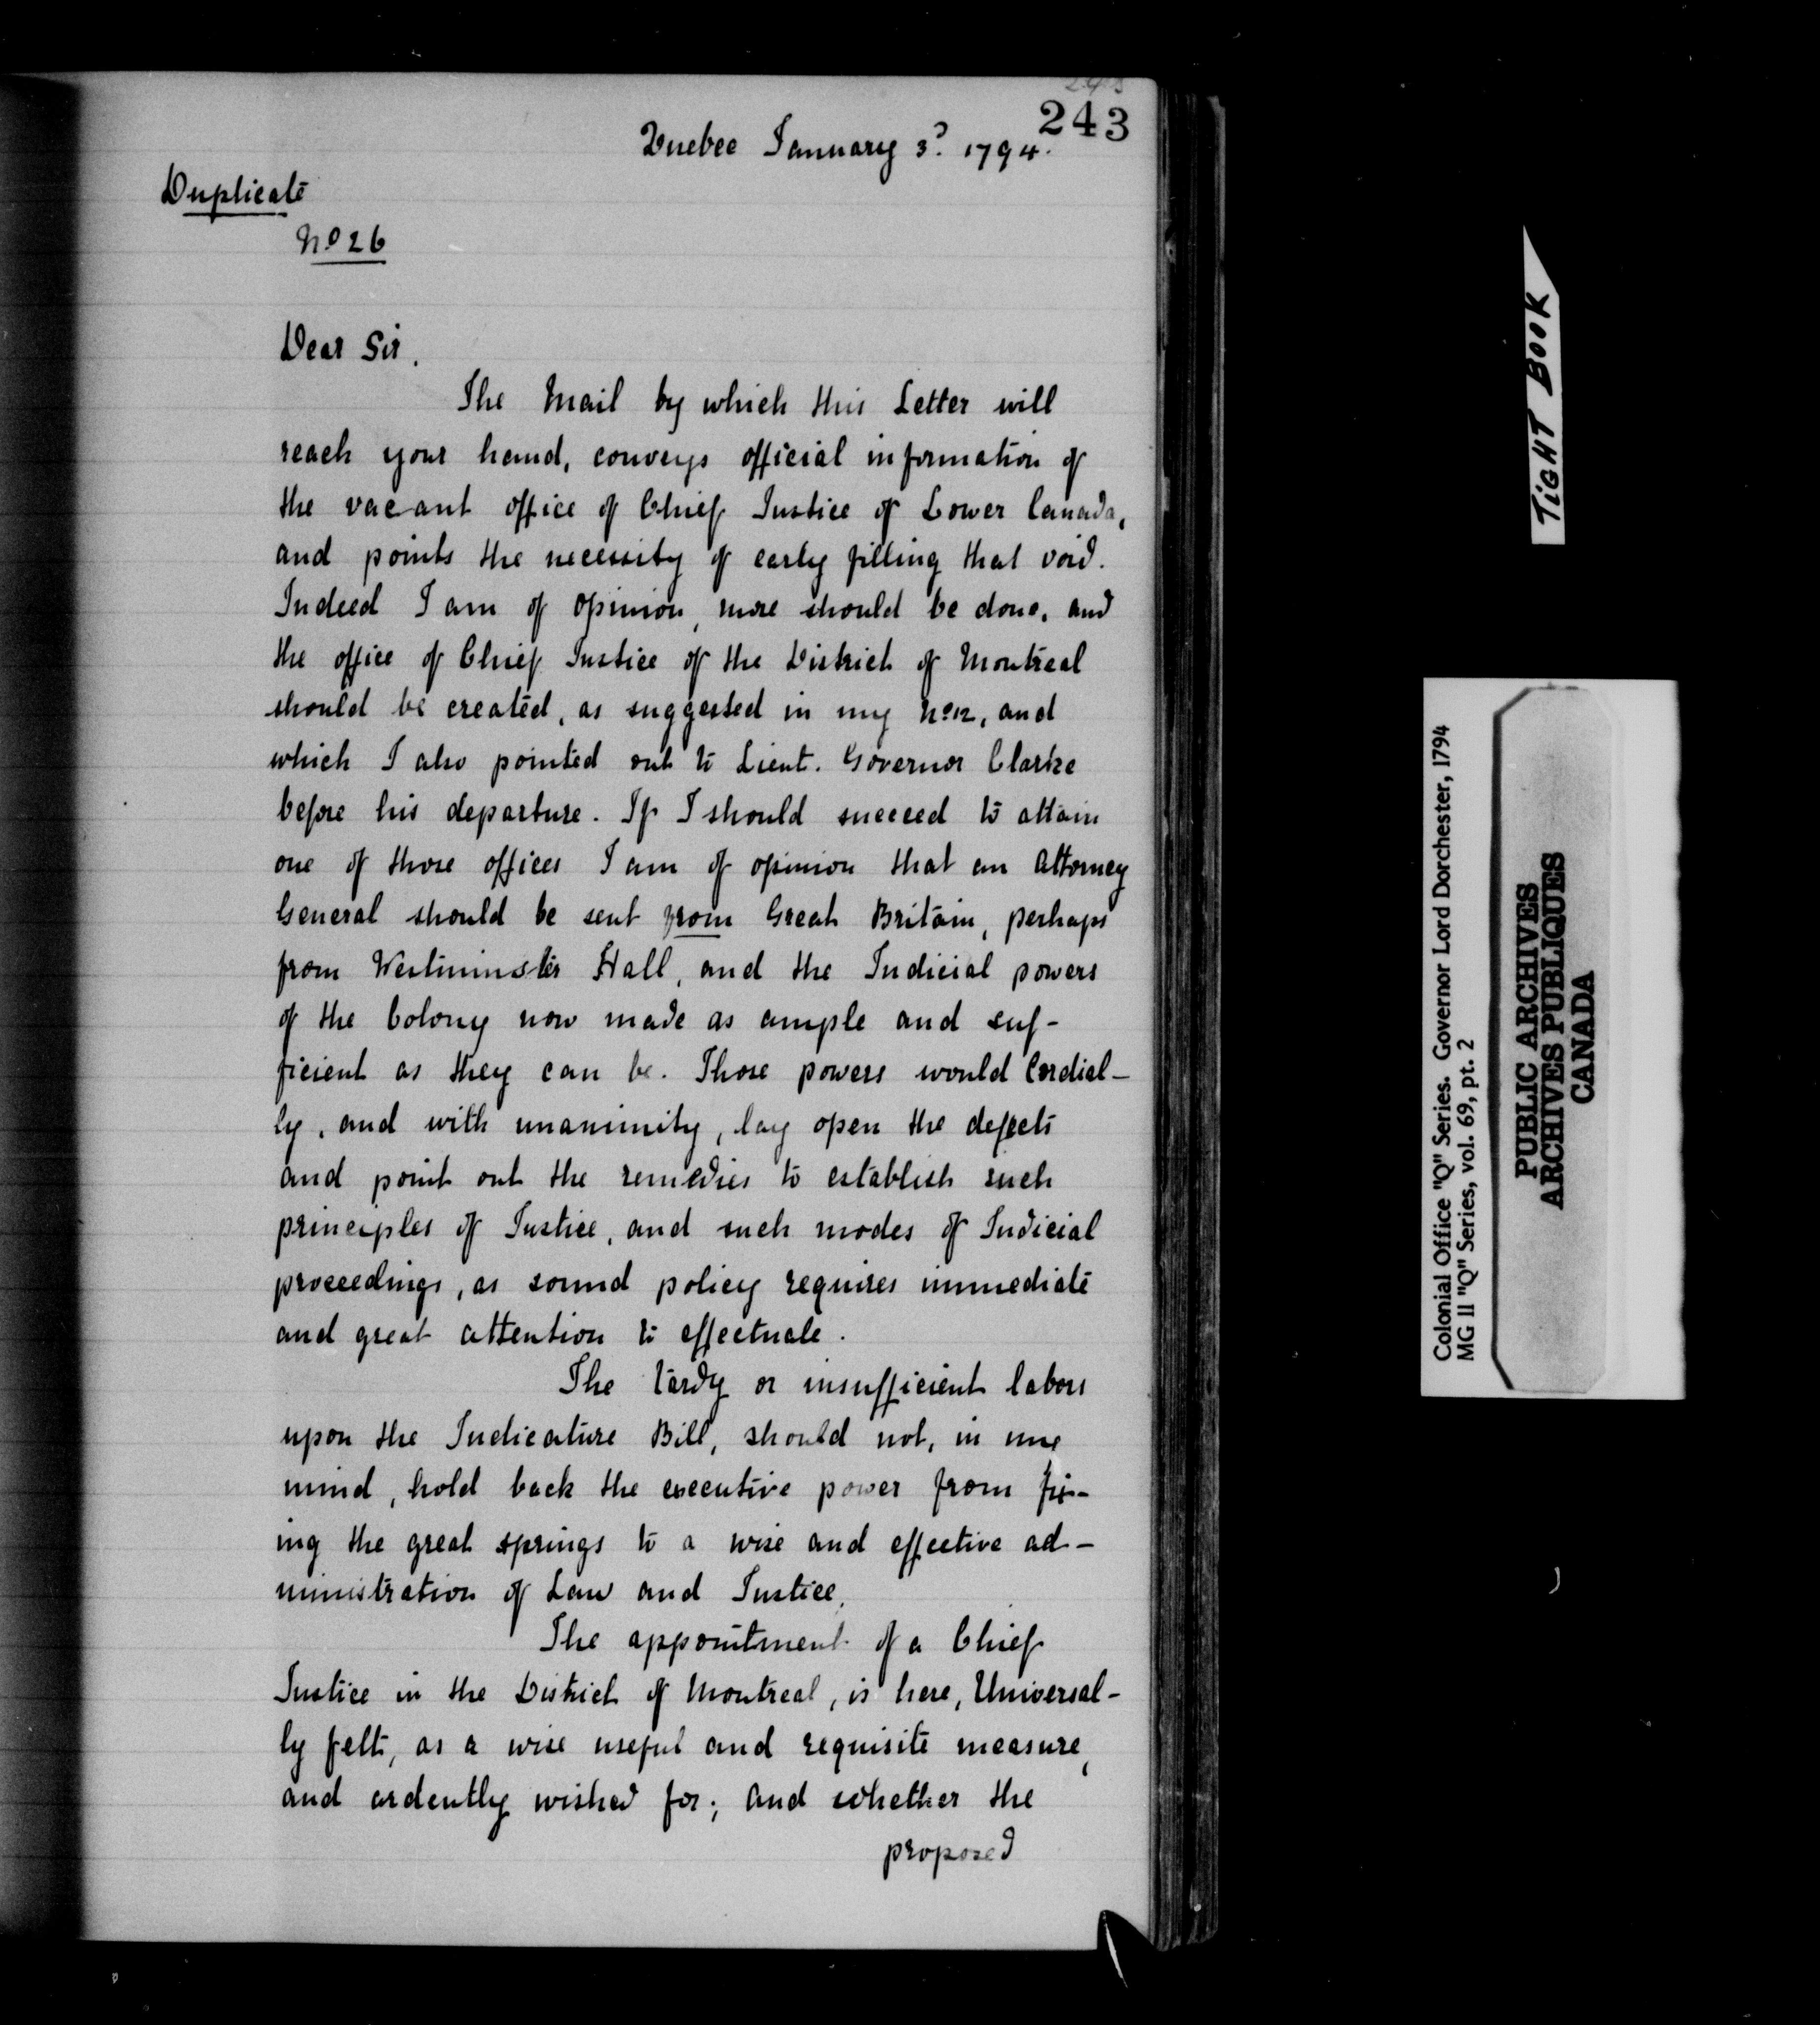 243
Quebec January 3d. 1794.
Duplicate
No 26
Dear Sir,
The Mail by which this Letter will
reach your hand, conveys official information of
the vacant office of Chief Justice of Lower Canada,
and points the necessity of early filling that void.
Indeed I am of opinion, more should be done, and
the office of Chief Justice of the District of Montreal
should be created, as suggested in my No 12, and
which I also pointed out to Lieut. Governor Clarke
before his departure. If I should succeed to attain
one of those offices I am of opinion that an Attorney
General should be sent from Great Britain, perhaps
from Westminster Hall, and the Judicial powers
of the Colony now made as ample and suf-
ficient as they can be. Those powers would Cordial-
ly, and with unanimity, lay open the defects
and point out the remedies to establish such
principles of Justice, and such modes of Judicial
proceedings, as sound policy requires immediate
and great attention to effectuate.
The tardy or insufficient labors
upon the Judicature Bill, should not, in my
mind, hold back the executive power from fix-
ing the great springs to a wise and effective ad-
ministration of Law and Justice.
The appointment of a Chief
Justice in the District of Montreal, is here, Universal-
ly felt, as a wise useful and requisite measure,
and ardently wished for; and whether the
proposed
TIGHT BOOK
Colonial Office "Q" Series. Governor Lord Dorchester, 1794
MG II "Q" Series, vol. 69, pt. 2
PUBLIC ARCHIVES
ARCHIVES PUBLIQUES
CANADA